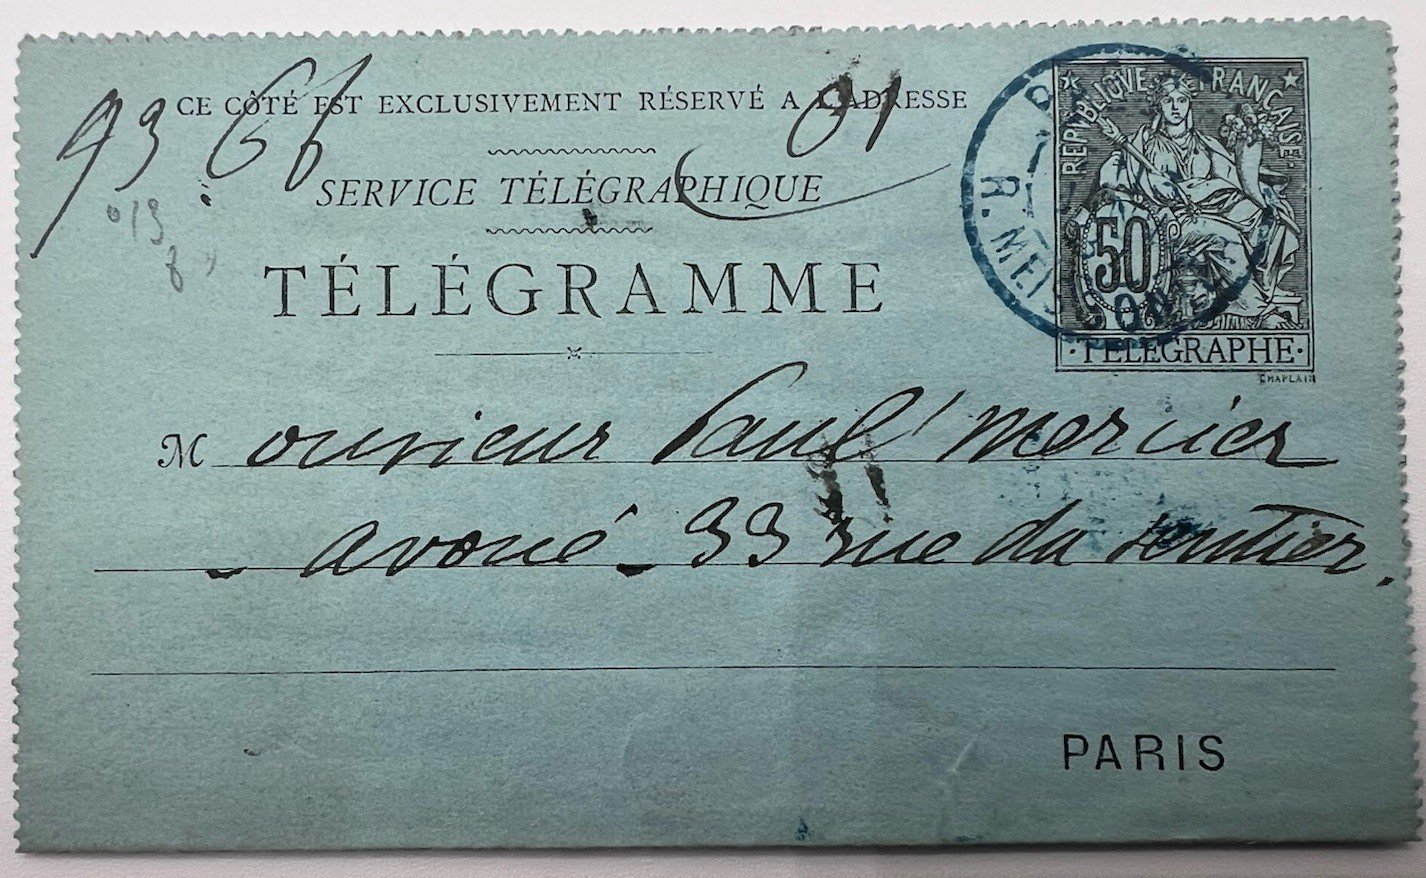 CE CÔTÉ EST EXCLUSIVEMENT RÉSERVÉ A L'ADRESSE
93 Gb 01
SERVICE TÉLÉGRAPHIQUE
TÉLÉGRAMME
REPUBLIQUE FRANÇAISE
50
TÉLÉGRAPHE
CHAPLAIN
R. MEISSONIER
Monsieur Paul Mercier
avoué - 33 rue du Sentier.
PARIS